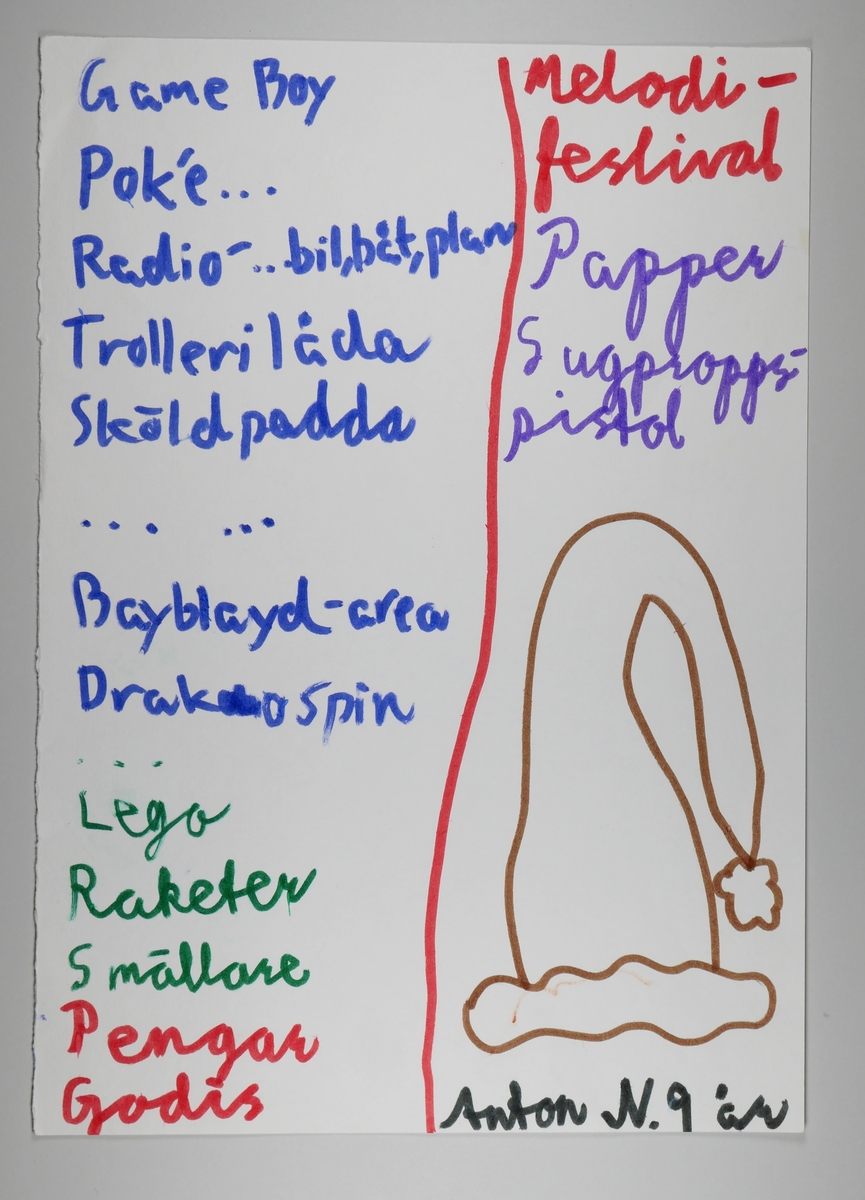 Game Boy
Pok'e...
Radio-..bil,båt,plan
Trolleri låda
Sköldpadda
... ...
Bayblayd-area
Drakospin
...
Lego
Raketer
Smällare
Pengar
Godis
Melodi-
festival
Papper
Sugpropps-
pistol
Anton N. 9 år